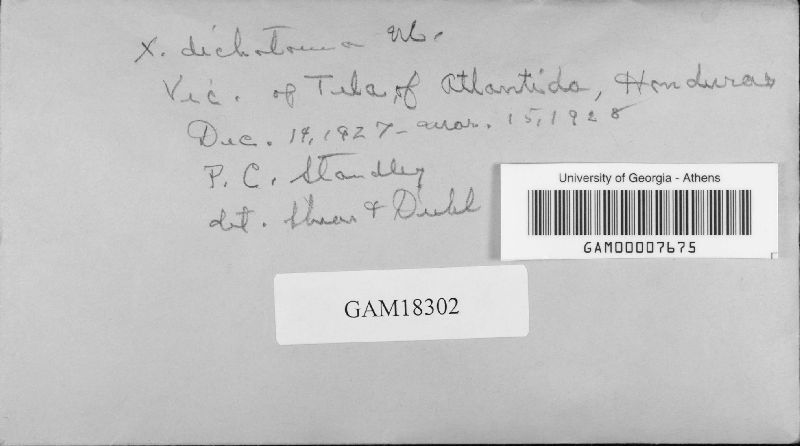 X. dichotoma
Vic. of Tela, of Atlantida, Honduras
Dec. 14, 1927 - mar. 15, 1928
P. C. Standley
det. Shear & Diehl
University of Georgia - Athens
GAM00007675
GAM18302